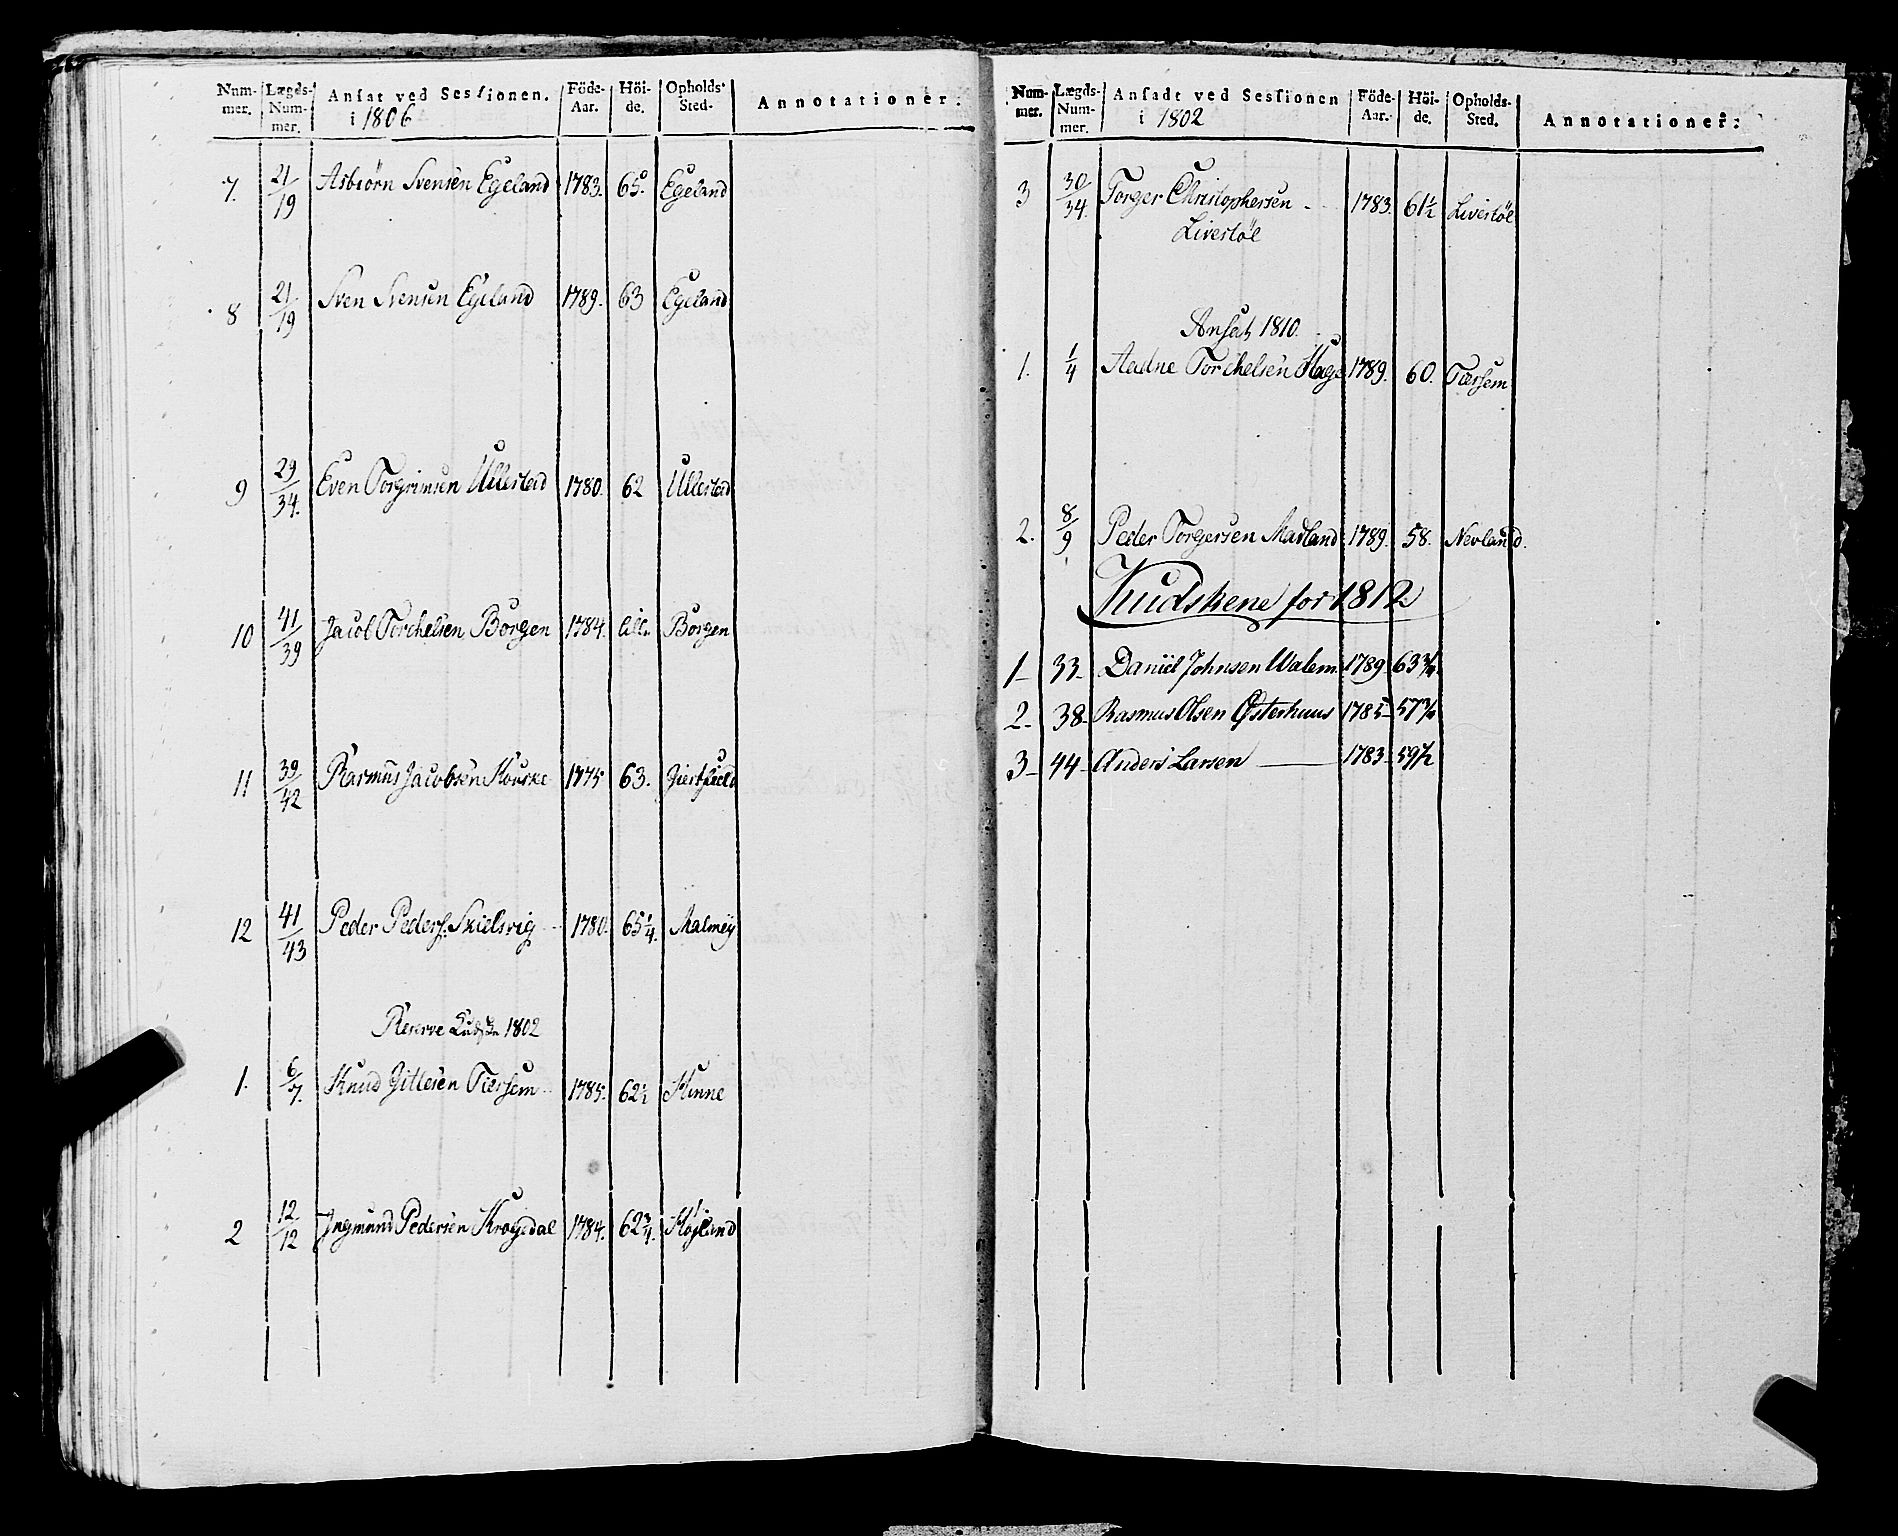 Num-mer. Lægds-Num-mer. Ansat ved Sessionen. i 1806 Föde-Aar. Höi-de. Opholds-Sted. Annotationer:
7. 21/19 Asbiørn Svensen Egeland 1783. 65. Egeland
8 21/19 Sven Svensen Egeland 1789. 63 Egeland
9 29/34. Even Torgrimsen Ullestad 1780. 62 Ullestad
10 41/39 Jacob Torchelsen Borgen 1784. Borgen
11 39/42 Rasmus Jacobsen 1775 63.
12 41/43 Peder Peders. Skielsvig 1780. 65 1/4. Malmey
Reserve Kudske 1802
1. 6/7. Knud Gitlesen Tiersem 1785. 62 1/2
2 12/12 Ingmund Pedersen Krogedal 1784. 62 3/4.
Num-mer. Lægds-Num-mer. Ansadt ved Sessionen i 1802 Föde-Aar. Höi-de. Opholds-Sted. Annotationer:
3 30/34. Torger Christophersen 1783. 61 1/2 Livestøl
Livestøl
Ansat 1810.
1. 1/4 Aadne Torchelsen 1789. 60.
2. 8/9 Peder Torgersen Madland 1789. 58. Nevland.
Kudskene for 1812
1 33 Daniel Johnsen Walem 1789 63 3/4
2 38 Rasmus Olsen Østerhuus 1785 57 3/4
3 44 Anders Larsen 1783 59 1/2